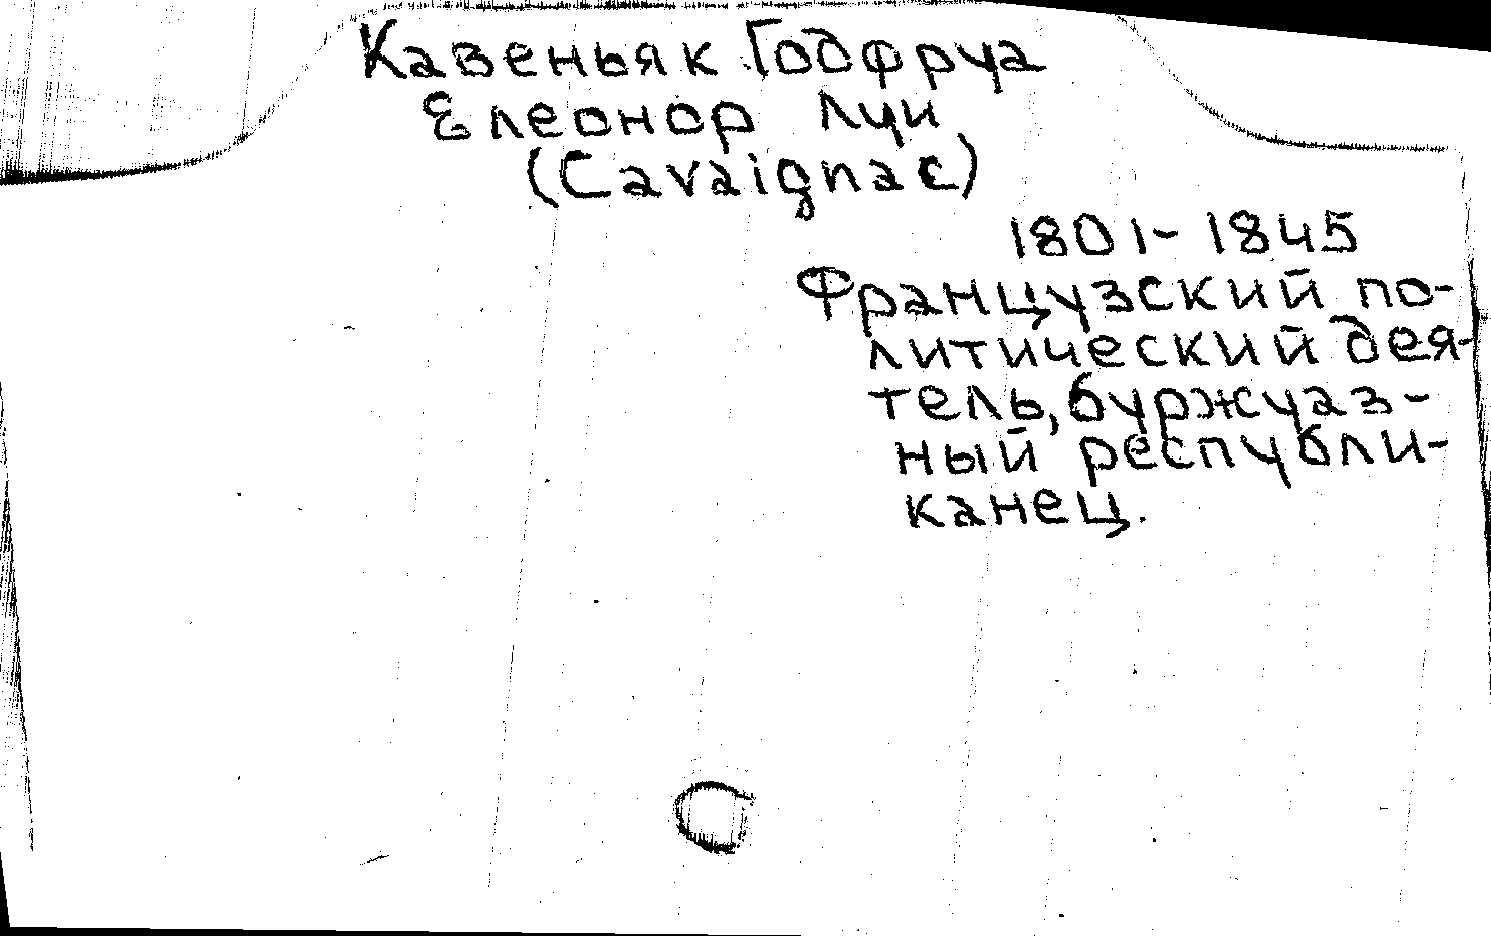 Кавеньяк Годфруа
Елеонор Луи
(Cavaignac)
1801-1845
Французский по-
литический дея-
тель, буржуаз-
ный республи-
канец.